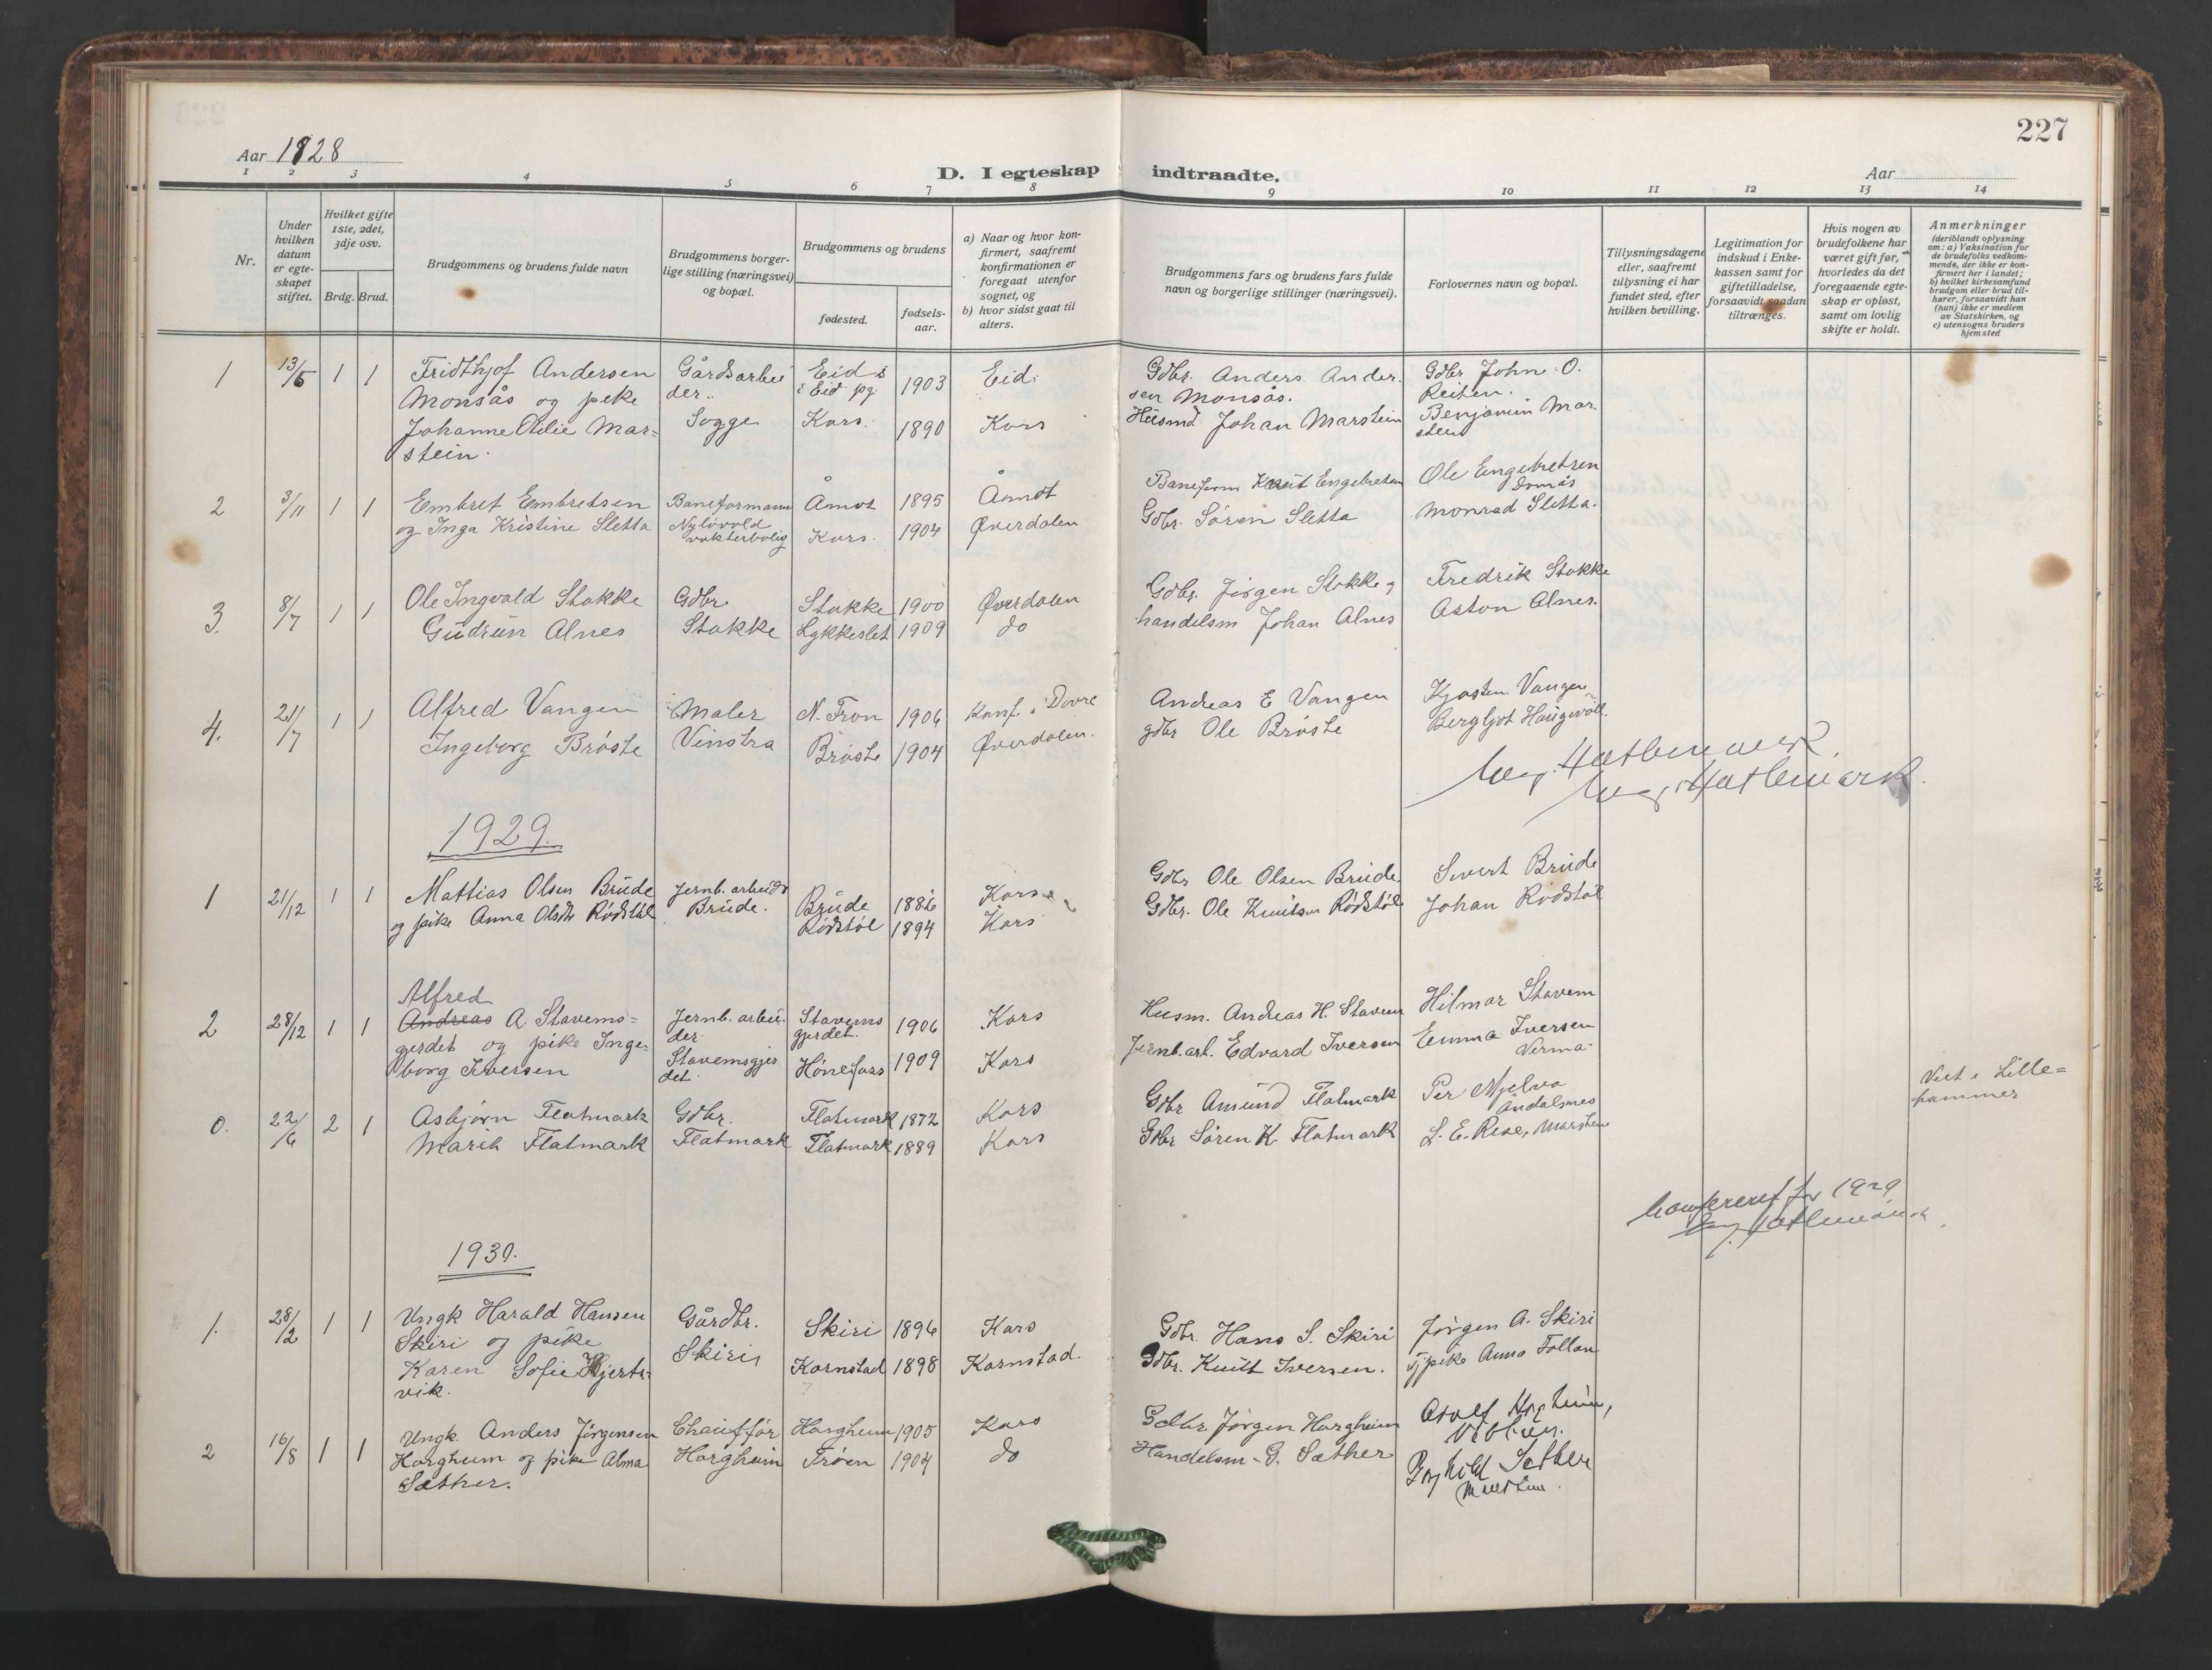 227
Aar 1928
D. I egteskap indtraadte.
Aar
1 2 3 4 5 6 7 8 9 10 11 12 13 14
Nr.
Under hvilken datum er egteskapet stiftet.
Hvilket gifte 1ste, 2det, 3dje osv.
Brdg. Brud.
Brudgommens og brudens fulde navn
Brudgommens borgerlige stilling (næringsvei) og bopæl.
Brudgommens og brudens
fødested.
fødselsaar.
a) Naar og hvor konfirmert, saafremt konfirmationen er foregaat utenfor sognet, og
b) hvor sidst gaat til alters.
Brudgommens fars og brudens fars fulde navn og borgerlige stillinger (næringsvei).
Forlovernes navn og bopæl.
Tillysningsdagene eller, saafremt tillysning ei har fundet sted, efter hvilken bevilling.
Legitimation for indskud i Enkekassen samt for giftetilladelse, forsaavidt saadan tiltrænges.
Hvis nogen av brudefolkene har været gift før, hvorledes da det foregaaende egteskap er opløst, samt om lovlig skifte er holdt.
Anmerkninger (deriblandt oplysning om: a) Vaksination for de brudefolks vedkommende, der ikke er konfirmert her i landet; b) hvilket kirkesamfund brudgom eller brud tilhører, forsaavidt han (hun) ikke er medlem av Statskirken, og c) utensogns bruders hjemsted
1 13/5 1 1 Fridthjof Andersen Gårdsarbei Eid i 1903 Eid. Gdbr. Anders Ander- Gdbr John O.
Monsås og pike der. i Eid pg. sen Monsås. Reiten.
Johanne Otilie Mar= Sogge Kors. 1890 Kors Husmd Johan Marstein Benjamin Mar
stein. stein
2 3/11 1 1 Embret Embretsen Baneformann Åmot 1895 Åmot Baneform Knut Engebretsen Ole Engebretsen
Domås
og Inga Kristine Sletta Nylivold Kors. 1904 Øverdalen Gdbr. Søren Sletta Monrad Sletta.
vokterbolig
3. 8/7 1 1 Ole Ingvald Stokke Gdbr. Stokke 1900 Øverdalen Gdbr. Jørgen Stokke, Fredrik Stokke
Gudrun Alnes Stokke Lykkeslet 1909 do handelsm Johan Alnes Aston Alnes.
4. 21/7 1 1 Alfred Vangen Maler N. Fron 1906 Konf. i Dovre Andreas E Vangen Kjosten Vangen
Ingeborg Brøste Vinstra Brøste 1904 Øverdalen. gdbr Ole Brøste Bergljot Haugvoll.
Hatlemark.
Hatlemark.
1929.
1 21/12 1 1 Mattias Olsen Brude Jernb. arbeider Brude 1886 Kors Gdbr Ole Olsen Brude Sivert Brude
og pike Anna Olsdtr Rødstøl Brude. Rødstøl 1894 Kors Gdbr. Ole Knutsen Rødstøl Johan Rødstøl
Alfred
2 28/12 1 1 Andreas A. Stavems= Jernb. arbei- Stavems 1906 Kors Husm. Andreas H. Stavem Hilmar Stavem
gerdet og pike Inge= der. gjerdet.
borg Iversen Stavemsgjer Hønefoss 1909 Kors Jernb.arb. Edvard Iversen Emma Iversen
det. Verma.
0. 22/6 2 1 Asbjørn Flatmark Gdbr. Flatmark 1872 Kors Gdbr Amund Flatmark Per Mjelva Viet i Lille=
Åndalsnes hammer
Marit Flatmark Flatmark Flatmark 1889 Kors Gdbr Søren K. Flatmark L. E. Rise, Marstein
Confereret for 1929
Hatlemark.
1930.
1. 28/2 1 1 Ungk Harald Hansen Gårdbr. Skiri 1896 Kors Gdbr. Hans S. Skiri Jørgen A. Skiri
Skiri og pike Skiri
Karen Sofie Hjerts- Kornstad 1898 Kornstad. Gdbr. Knut Iversen. Tjpike Anna Follan
vik.
2 16/8 1 1 Ungk. Anders Jørgensen Chauffør Horgheim 1905 Kors Gdbr Jørgen Horgheim
Horgheim og pike Alma Horgheim Trøen 1904 do Handelsm. G. Sæther
Sæther.
Sæther